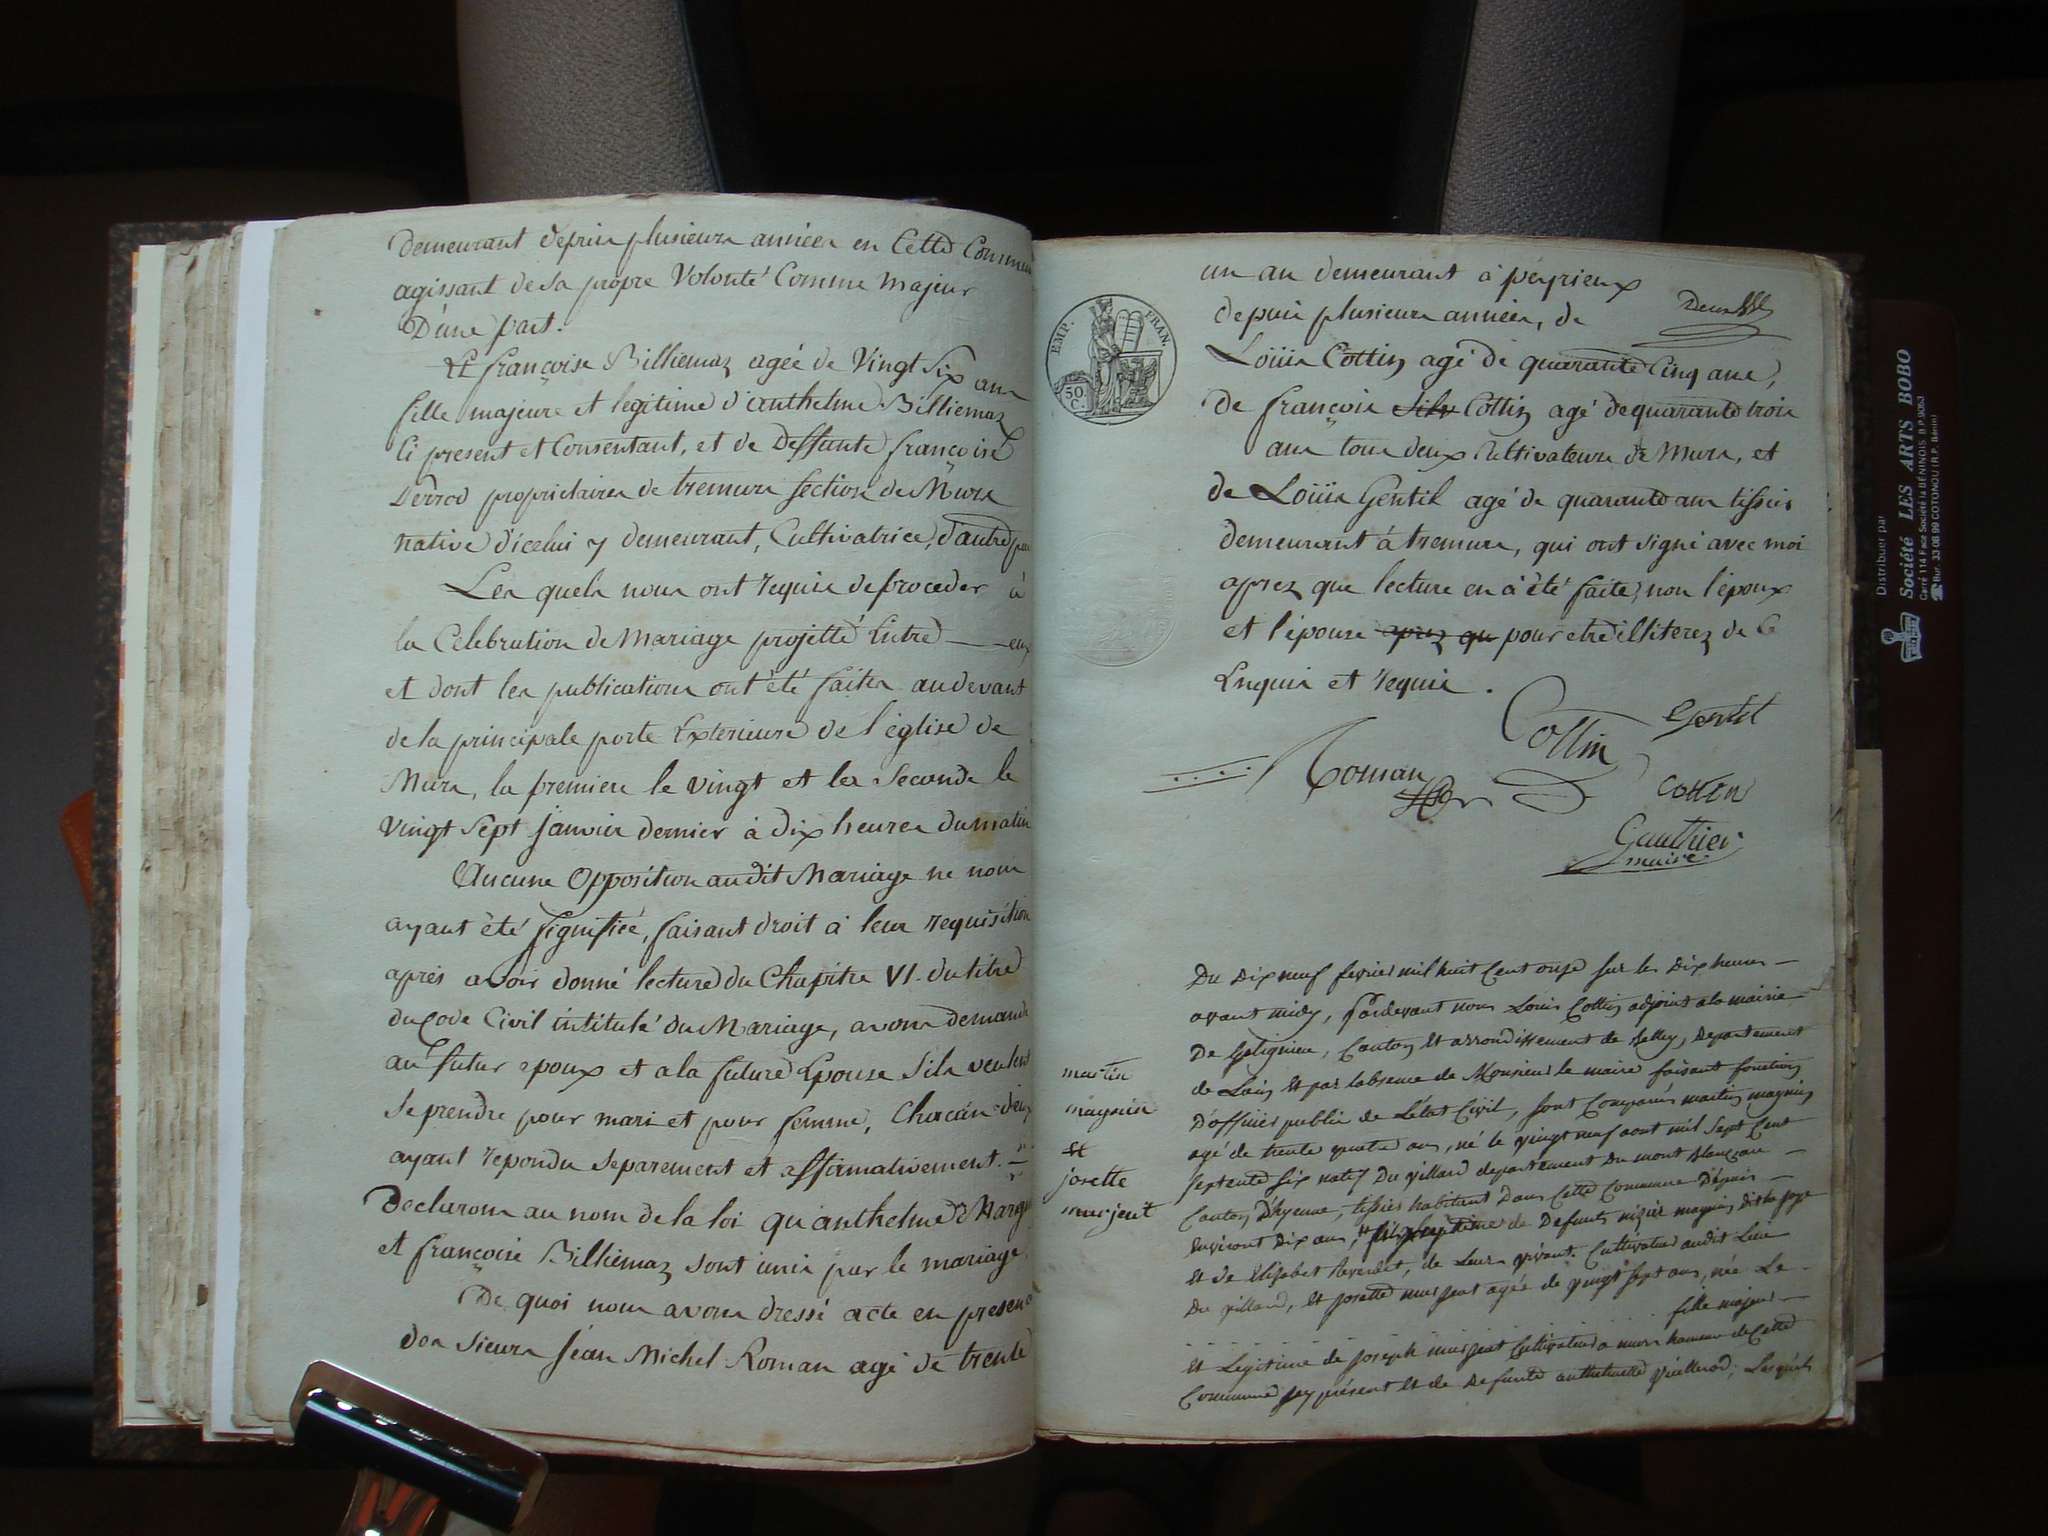 demeurant depuis plusieurs années en Cette Commune
agissant de sa propre Volonté Comme Majeur
D'une part.
Et françoise Billiemaz agée de Vingt Six ans
fille majeure et legitime d'anthelme Billiemaz
Ci present et Consentant, et de Deffunte françoise
propriétaires de tremurs section de Murs
native d'icelui y demeurant, Cultivatrice, d'autre part
Les quels nous ont requis de proceder à
la Célébration de Mariage projetté Entre eux
et dont les publications ont été faites au devant
de la principale porte Exterieure de l'église de
Murs, la premiere le vingt et la Seconde le
Vingt Sept janvier dernier à dix heures du matin
Aucune Opposition audit Mariage ne nous
ayant été signifiée, faisant droit à leur requisition
après avoir donné lecture du Chapitre VI. du titre
du Code Civil intitulé du Mariage, avons demandé
au futur epoux et a la future Epouse S'ils veulent
se prendre pour mari et pour femme, Chacun d'eux
ayant repondu separement et affirmativement.
Declarons au nom de la loi qu'anthelme
et françoise Billiemaz sont unis par le mariage.
De quoi nous avons dressé acte en presence
des Sieurs jean Michel Roman agé de trente
EMP. FRAN.
50 C.
un an demeurant à peyrieux
depuis plusieurs années, de
Louis Cottin agé de quarante Cinq ans,
de françois Cottin agé de quarante trois
ans tous deux Cultivateurs de Murs, et
de Louis Gentil agé de quarante ans tissier
demeurant à tremurs, qui ont signé avec moi
aprez que lecture en a été faite, non l'époux
et l'épouse aprez qu pour etre illiterez de Ce
Enquis et requis.
Cottin Gentil
Roman
Cottin
Gauthier
maire
martin
magnin
et
josette
murjeut
Du Dix neuf fevrier mil huit Cent onze sur les Dix heures
avant midy, Pardevant nous Louis Cottin adjoint a la mairie
De Gelignieu, Canton Et arrondissement de Belley, Departement
de Lain Et par labsence de Monsieur le maire faisant fonction
D'officier public de L'état Civil, sont Comparus martin magnin
agé de trente quatre ans, né le vingt neuf aout mil sept Cent
septente six natif Du villard departement Du mont Blanc
Canton D'hyenne, tissier habitant Dans Cette Commune Dépuis
Environt Dix ans, fils legitime de Defunts magnin dit
Et de Elisabet Reverdet, de Leurs vivant Cultivateur audit Lieu
Du villard, Et josette murjeut agée de vingt sept ans, née Le
fille majeur
Et Legitime de joseph murjeut Cultivateur a murs hameau de Cette
Commune présent Et de Defunte anthelmette Lesquels
Distribuer par
Société LES ARTS BOBO
Carré 114 Face Société la BÉNINOIS B.P. 9053
Bur. 33 08 99 COTONOU (R.P. Bénin)